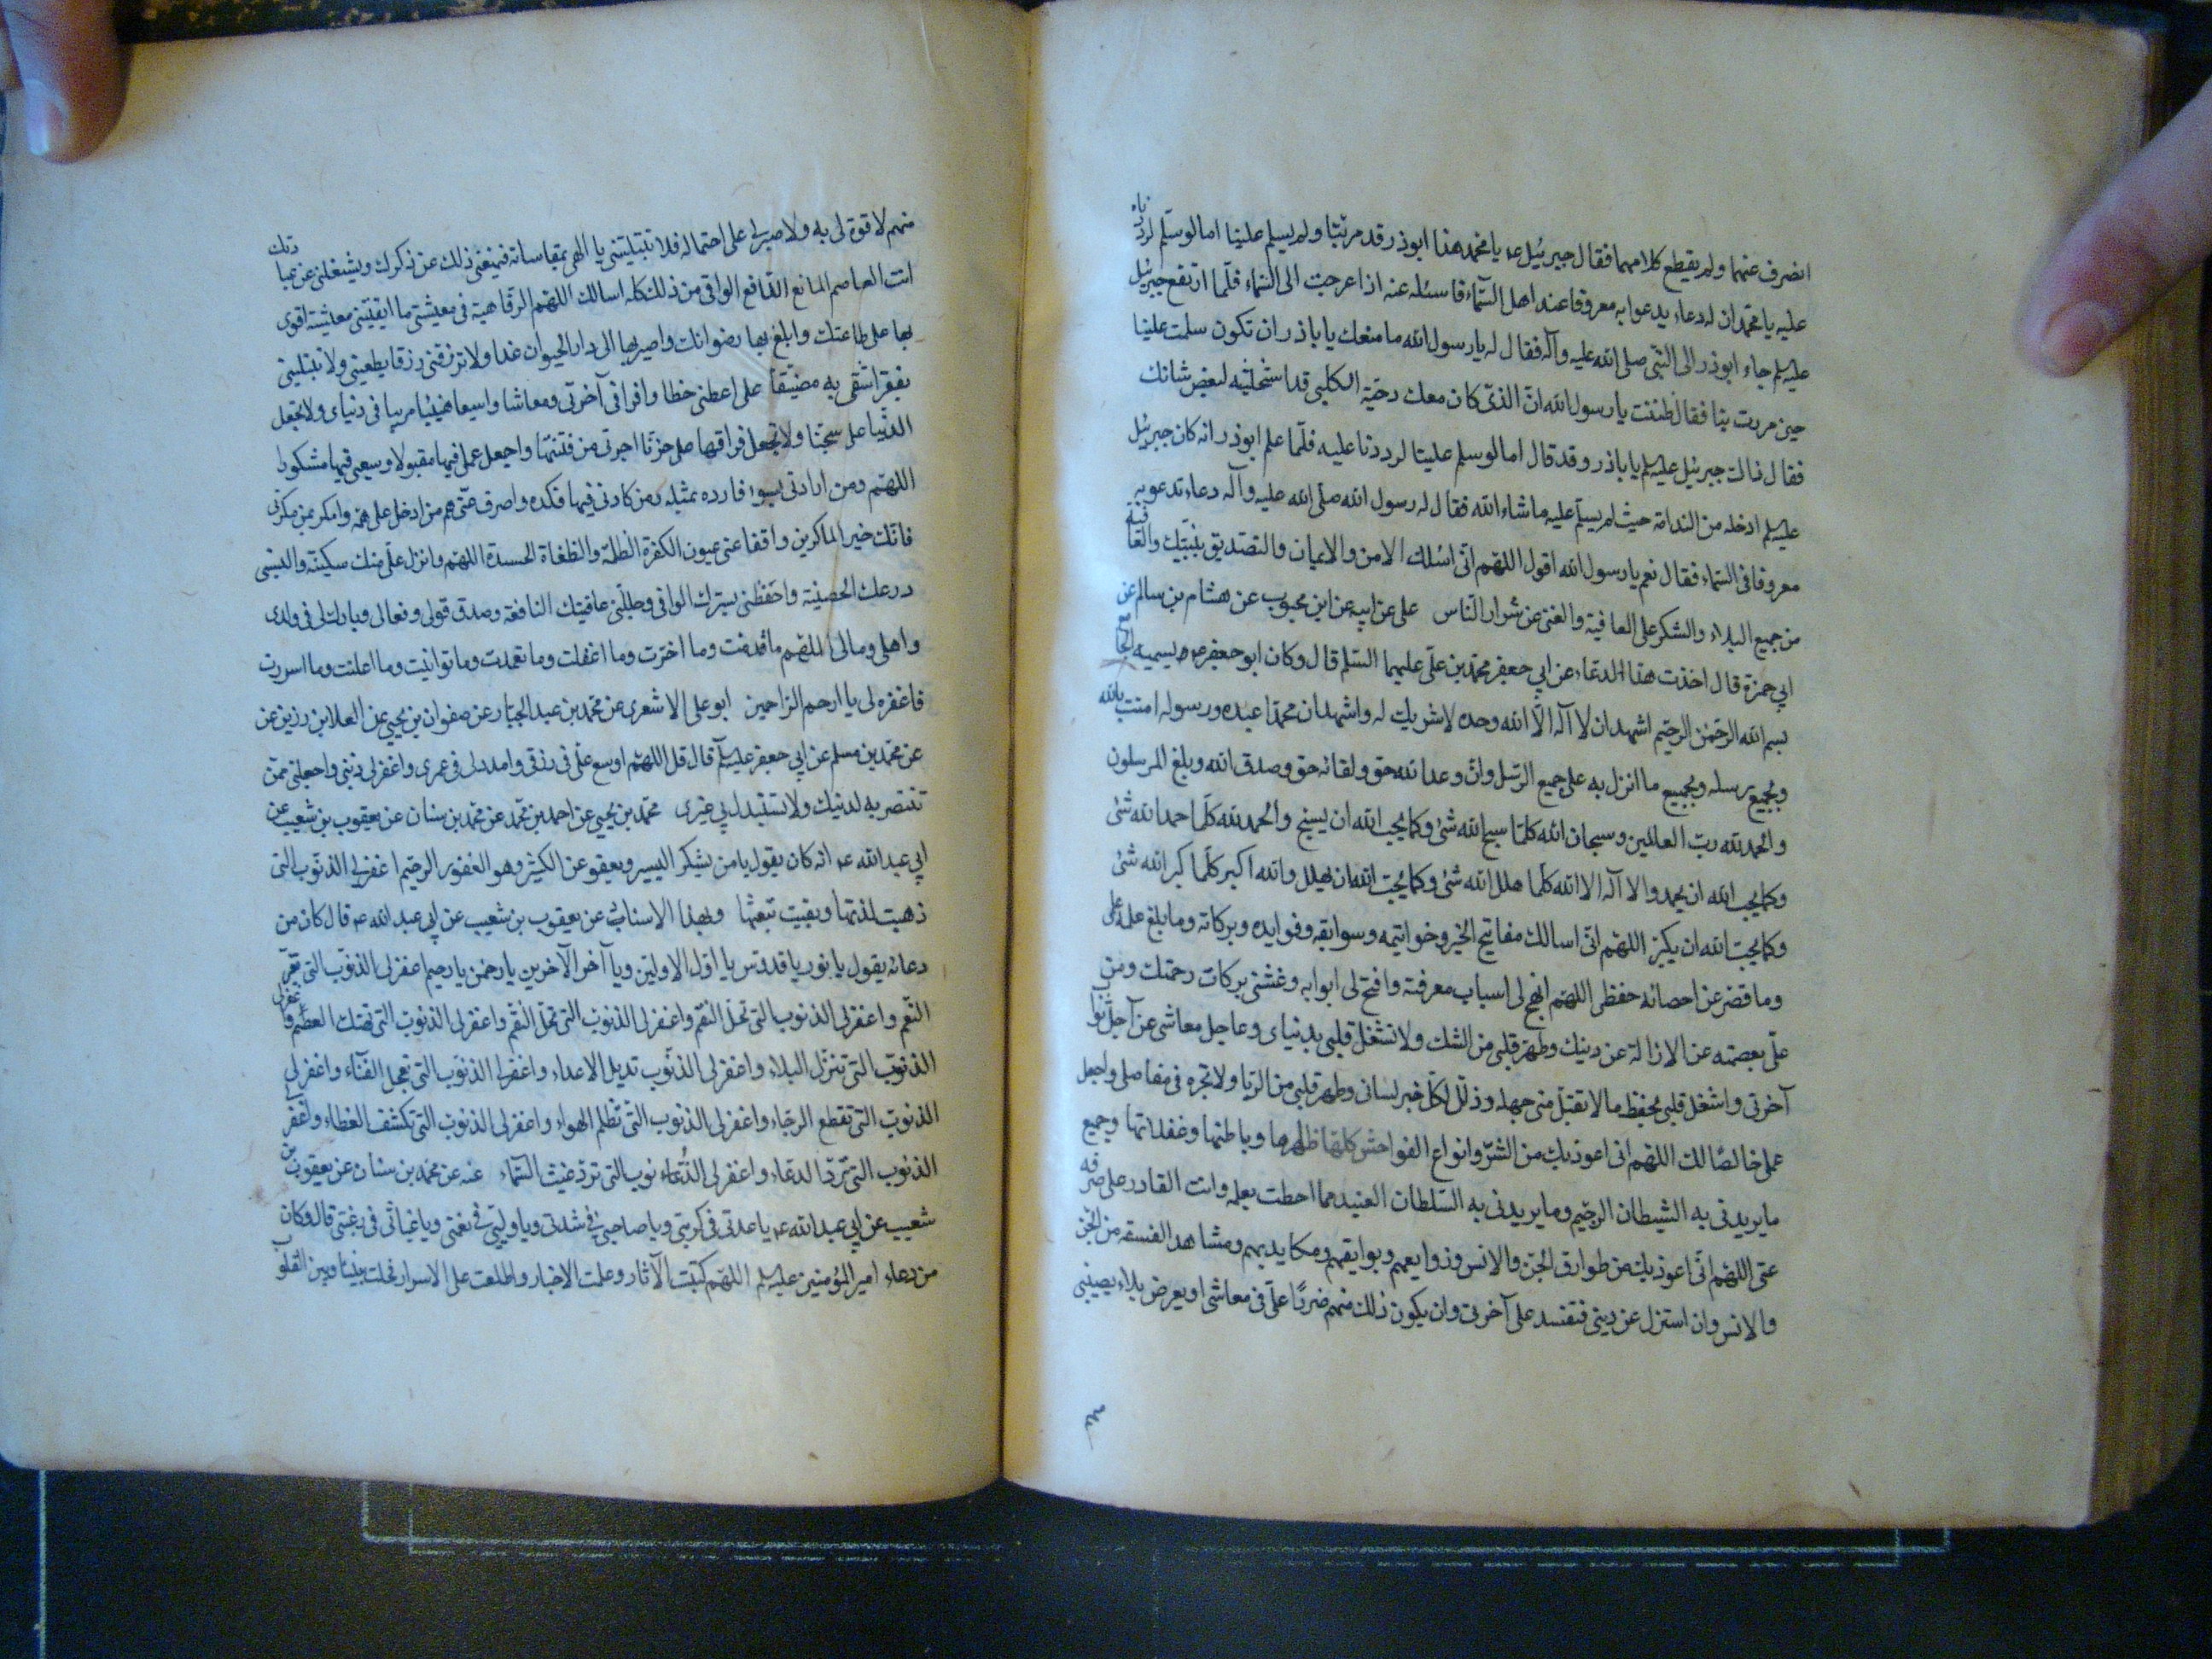 انصرف عنهما ولم يقطع كلامهما فقال جبرئيل عه يا محمد هذا ابوذر قد مر بنا ولم يسلم علينا اما لو سلم لرددنا
عليه يا محمد ان له دعاء يدعوا به معروفا عند اهل السماء فاسئله عنه اذا عرجت الى السماء فلما ارتفع جبرئيل
عليه لم جاء ابوذر الى النبي صلى الله عليه وآله فقال له يا رسول الله ما منعك يا باذر ان تكون سلمت علينا
حين مررت بنا فقال ظننت يا رسول الله ان الذي كان معك دحية الكلبي قد استخليته لبعض شانك
فقال ذاك جبرئيل عليه لم يا باذر وقد قال اما لو سلم علينا لرددنا عليه فلما علم ابوذر انه كان جبرئيل
عليه لم ادخله من الندامة حيث لم يسلم عليه ما شاء الله فقال له رسول الله صلى الله عليه وآله دعاء تدعو به
معروفا في السماء فقال نعم يا رسول الله اقول اللهم اني اسئلك الامن والايمان والتصديق بنبيك والعافية
من جميع البلاء والشكر على العافية والغنى عن شرار الناس على عن ابيه عن ابن محبوب عن هشام بن سالم عن
ابي حمزة قال اخذت هذا الدعاء عن ابي جعفر محمد بن علي عليهما السلم قال وكان ابو جعفر عه يسميه الجامع
بسم الله الرحمن الرحيم اشهد ان لا اله الا الله وحده لا شريك له واشهد ان محمدا عبده ورسوله امنت بالله
وبجميع رسله وبجميع ما انزل به على جميع الرسل وان وعد الله حق ولقائه حق وصدق الله وبلغ المرسلون
والحمد لله رب العالمين وسبحان الله كلما سبح الله شئ وكما يحب الله ان يسبح والحمد لله كلما حمد الله شئ
وكما يحب الله ان يحمد ولا اله الا الله كلما هلل الله شئ وكما يحب الله ان يهلل والله اكبر كلما كبر الله شئ
وكما يحب الله ان يكبر اللهم اني اسالك مفاتيح الخير وخواتيمه وسوابقه وفوايده وبركاته وما بلغ علمه على
وما قصر عن احصائه حفظى اللهم انهج لى اسباب معرفته وافتح لى ابوابه وغشنى بركات رحمتك ومن
علي بعصمه عن الازالة عن دينك وطهر قلبي من الشك ولا تشغل قلبي بدنياى وعاجل معاشى عن آجل ثواب
آخرتى واشغل قلبي بحفظ ما لا تقبل منى جهله وذلل لكل خير لسانى وطهر قلبي من الريا ولا تجره في مفاصلى واجعل
عملى خالصا لك اللهم انى اعوذ بك من الشر وانواع الفواحش كلها ظاهرها وباطنها وغفلاتها وجميع
ما يريدنى به الشيطان الرجيم وما يريدنى به السلطان العنيد مما احطت بعلمه وانت القادر على صرفه
عنى اللهم انى اعوذ بك من طوارق الجن والانس وزوابعهم وبوايقهم ومكايديهم ومشاهد الفسقه من الجن
والانس وان استزل عن دينى فتفسد على آخرتى وان يكون ذلك منهم ضررا على في معاشى او يعرض بلاء يصيبني
منهم
منهم لا قوة لى به ولا صبر لى على احتماله فلا تبتلينى يا الهى بمقاساته فيمنعنى ذلك عن ذكرك ويشغلنى عن عبادتك
انت العاصم المانع الدافع الواقى من ذلك كله اسالك اللهم الرفاهية في معيشتى ما ابقيتنى معيشة اقوى
بها على طاعتك وابلغ بها رضوانك واصير بها الى دار الحيوان غدا ولا ترزقنى رزقا يطغينى ولا تبتلينى
بفقر اشقى به مضيقا على اعطنى حظا وافرا فى آخرتى ومعاشا واسعا هنيئا مريئا فى دنياى ولا تجعل
الدنيا على سجنا ولا تجعل فراقها على حزنا اجرنى من فتنتها واجعل عملى فيها مقبولا وسعيى فيها مشكورا
اللهم ومن ارادنى بسوء فارده بمثله ومن كادنى فيها فكده واصرف عنى هم من ادخل على همه وامكر بمن مكرنى
فانك خير الماكرين وافقا عنى عيون الكفرة الظلمة والطغاة الحسدة اللهم وانزل على منك سكينة والبسنى
درعك الحصينة واحفظنى بسترك الواقى وجللنى عافيتك النافعة وصدق قولى وفعالى وبارك لى في ولدى
واهلى ومالى اللهم ما قدمت وما اخرت وما اغفلت وما تعمدت وما توانيت وما اعلنت وما اسررت
فاغفره لى يا ارحم الراحمين ابو على الاشعرى عن محمد بن عبد الجبار عن صفوان بن يحيى عن العلا بن رزين عن
عن محمد بن مسلم عن ابي جعفر عليه لم قال قل اللهم اوسع على فى رزقى وامدد لى فى عمرى واغفر لى ذنبى واجعلنى ممن
تنتصر به لدينك ولا تستبدل بي غيرى محمد بن يحيى عن احمد بن محمد عن محمد بن سنان عن يعقوب بن شعيب عن
ابي عبد الله عه انه كان يقول يا من يشكر اليسير ويعفو عن الكثير وهو الغفور الرحيم اغفر لى الذنوب التى
ذهبت لذتها وبقيت تبعتها وبهذا الاسناد عن يعقوب بن شعيب عن ابي عبد الله عه قال كان من
دعائه يقول يا نور يا قدوس يا اول الاولين ويا آخر الآخرين يا رحمن يا رحيم اغفر لى الذنوب التى تغير
النقم واغفر لى الذنوب التى تحل النقم واغفر لى الذنوب التى تحل النقم واغفر لى الذنوب التى تهتك العصم واغفر لى
الذنوب التى تنزل البلاء واغفر لى الذنوب تديل الاعداء واغفر لى الذنوب التى تعجل الفناء واغفر لى
الذنوب التى تقطع الرجاء واغفر لى الذنوب التى تظلم الهواء واغفر لى الذنوب التى تكشف الغطاء واغفر لى
الذنوب التى ترد الدعاء واغفر لى الذنوب التى ترد غيث السماء عنه عن محمد بن سنان عن يعقوب بن
شعيب عن ابي عبد الله عه يا عدتى فى كربتى ويا صاحبى فى شدتى ويا وليى فى نعمتى ويا غياثى فى رغبتى قال وكان
من دعاء امير المؤمنين عليه لم اللهم كتبت الآثار وعلمت الاخبار واطلعت على الاسرار فحلت بيننا وبين القلوب